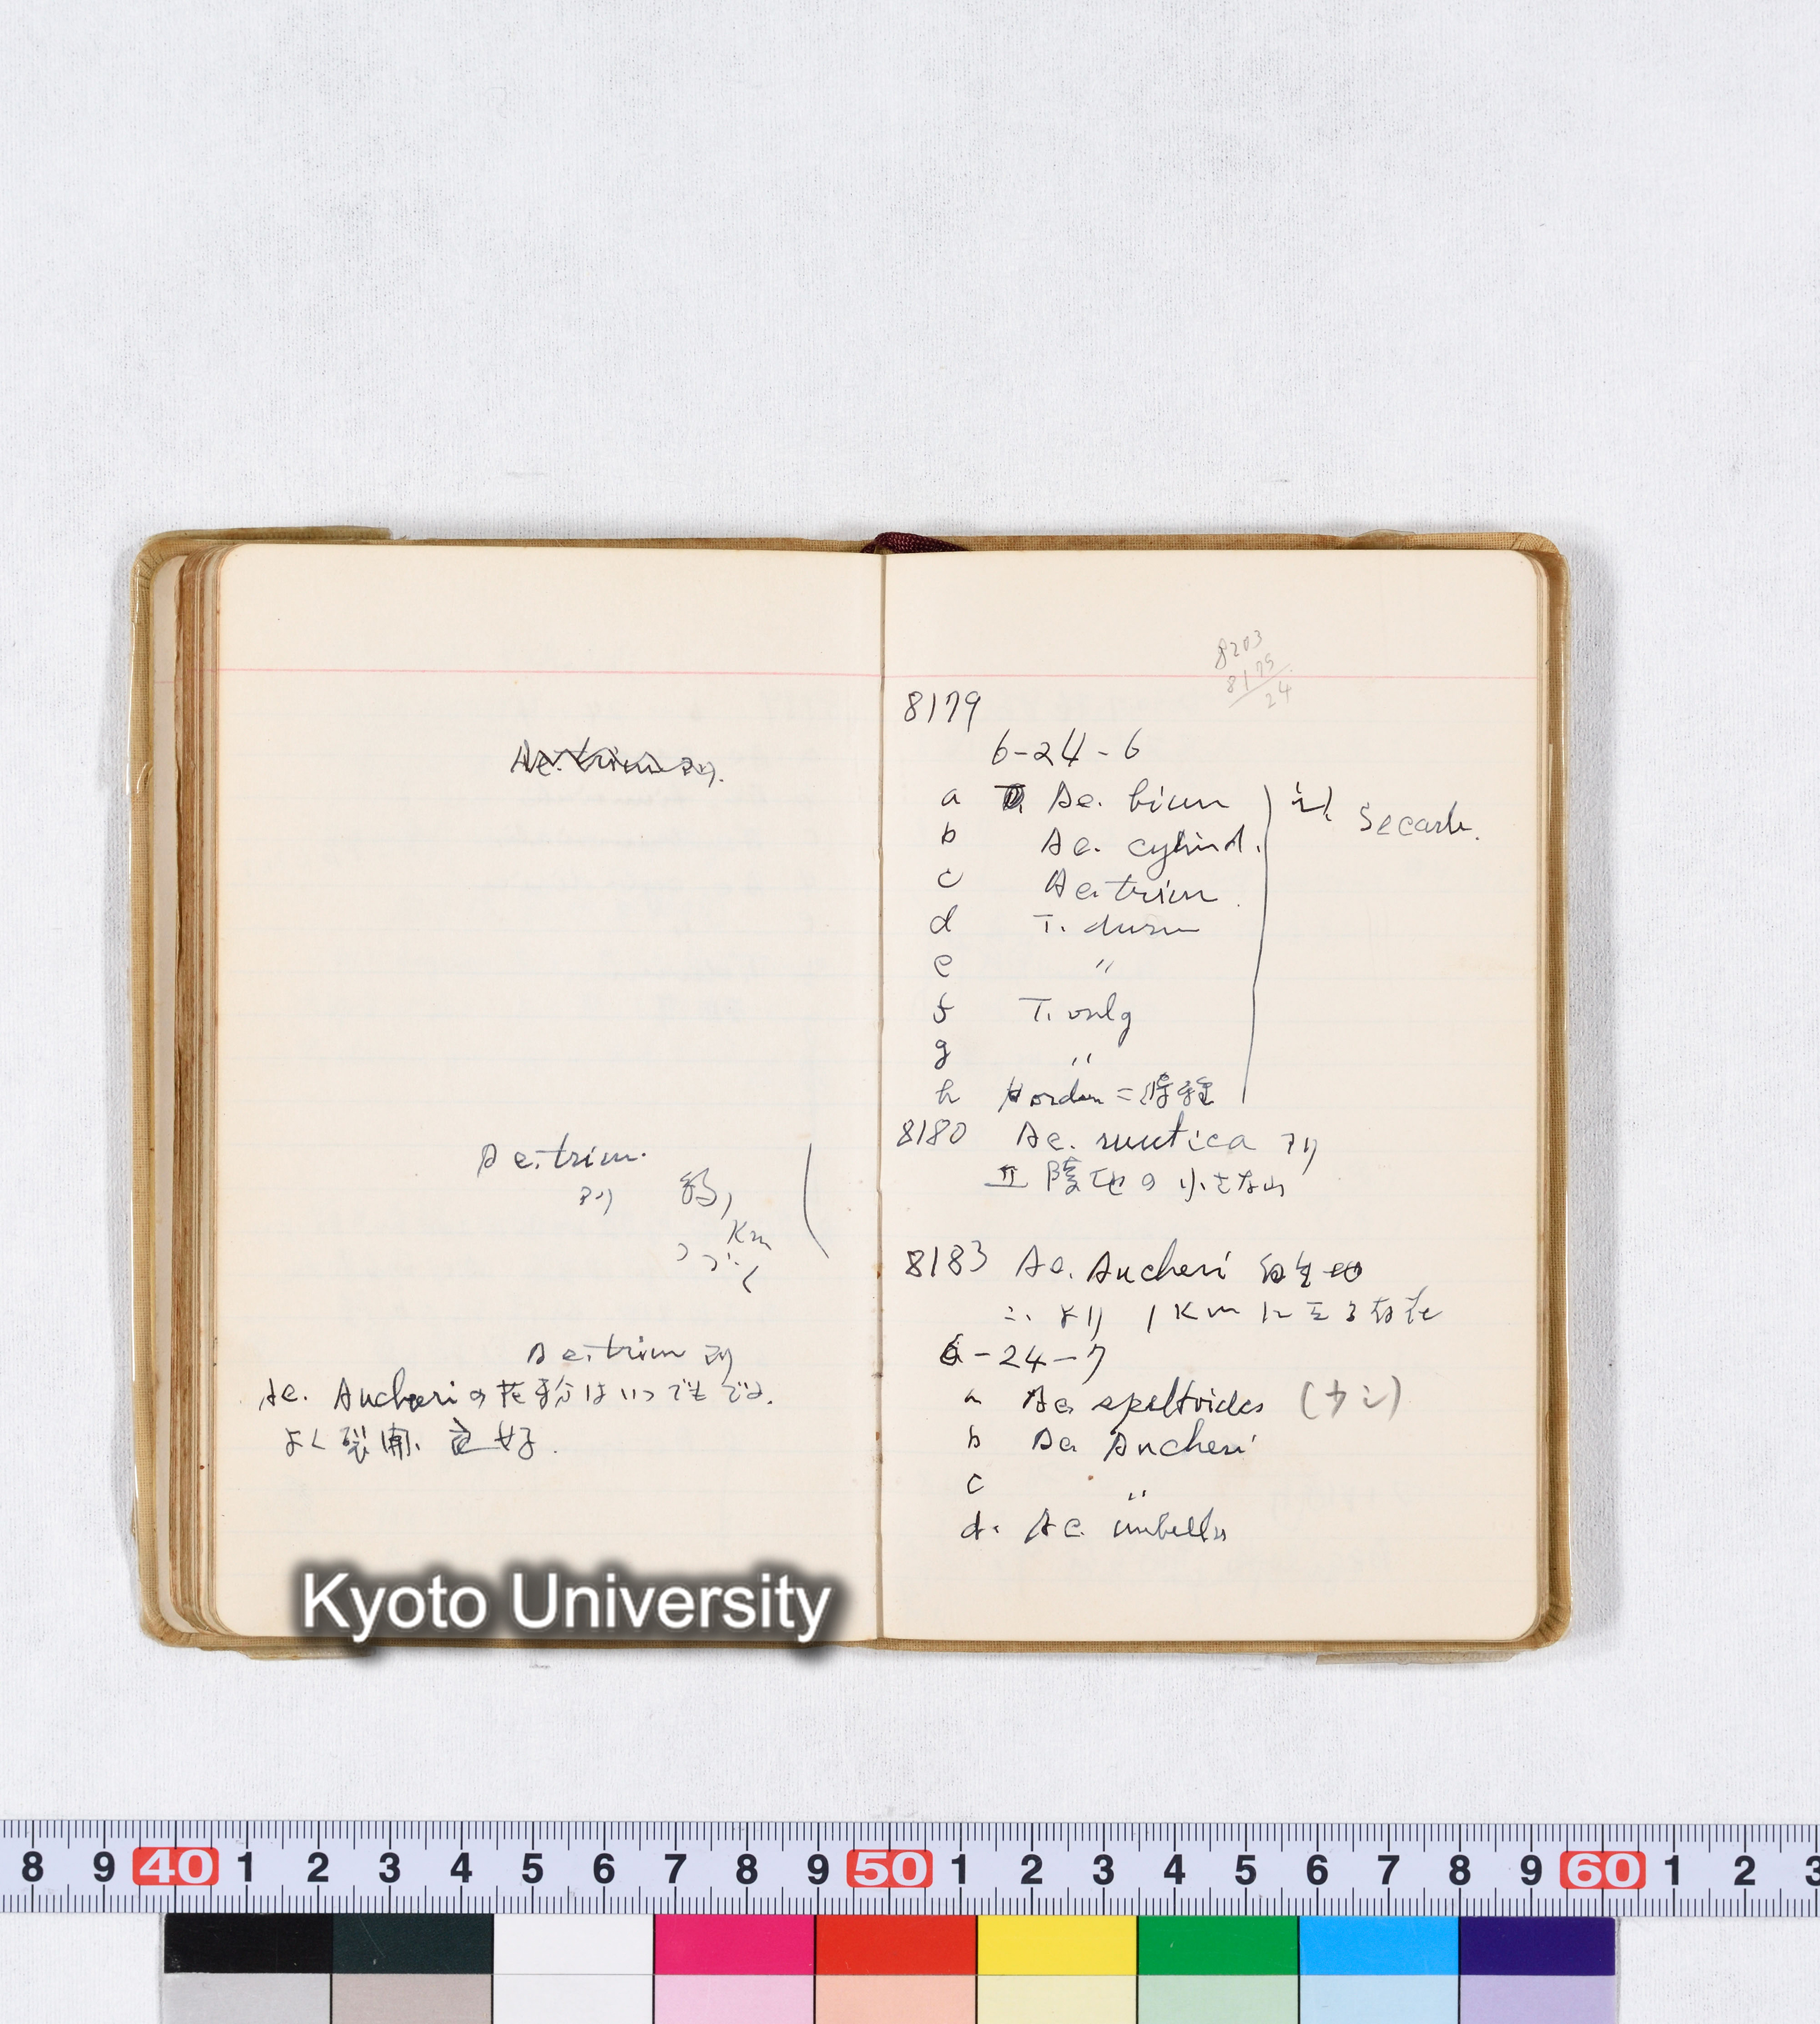 Ae. trium アリ.
Ae. trium.
アリ
Km
つづく
Ae. trium アリ
Ae. Aucheri の花粉はいつでもでる.
よく裂開、良好.
8203
8179
24
8179
6-24-6
a Ae. biun
b Ae. cylind.
c Ae. trium.
d T. durum
e 〃
f T. vulg
g 〃
h Hordeum = 
Secale.
8180 Ae. mutica アリ
丘陵地の小さな山
8183 Ae. Aucheri
こゝより 1Km に亘る
6-24-7
a Ae. speltoides (ナシ)
b Ae. Aucheri
c 〃
d. Ae. umbellu
Kyoto University
8 9 40 1 2 3 4 5 6 7 8 9 50 1 2 3 4 5 6 7 8 9 60 1 2 3